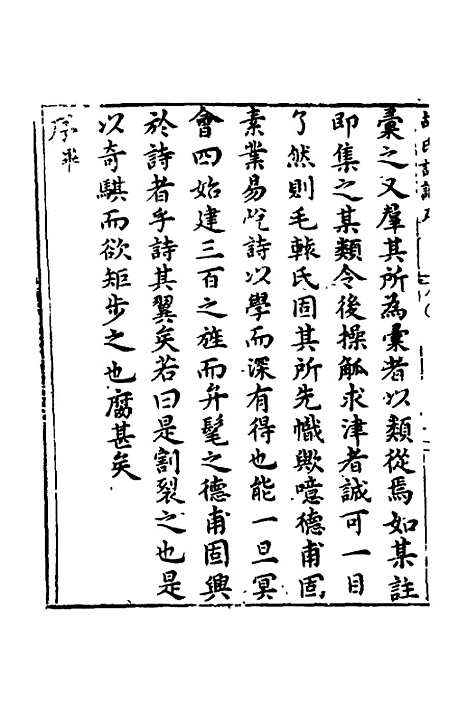 彙之又羣其所為彙者以類從焉如某註
即集之某類令後操觚求津者誠可一目
了然則毛轅氏固其所先幟歟噫德甫固
素業易從詩以學而深有得也能一旦冥
會四始建三百之旌而弁髦之德甫固興
於詩者乎詩其翼矣若曰是割裂之也是
以奇騏而欲矩步之也腐甚矣
序釆